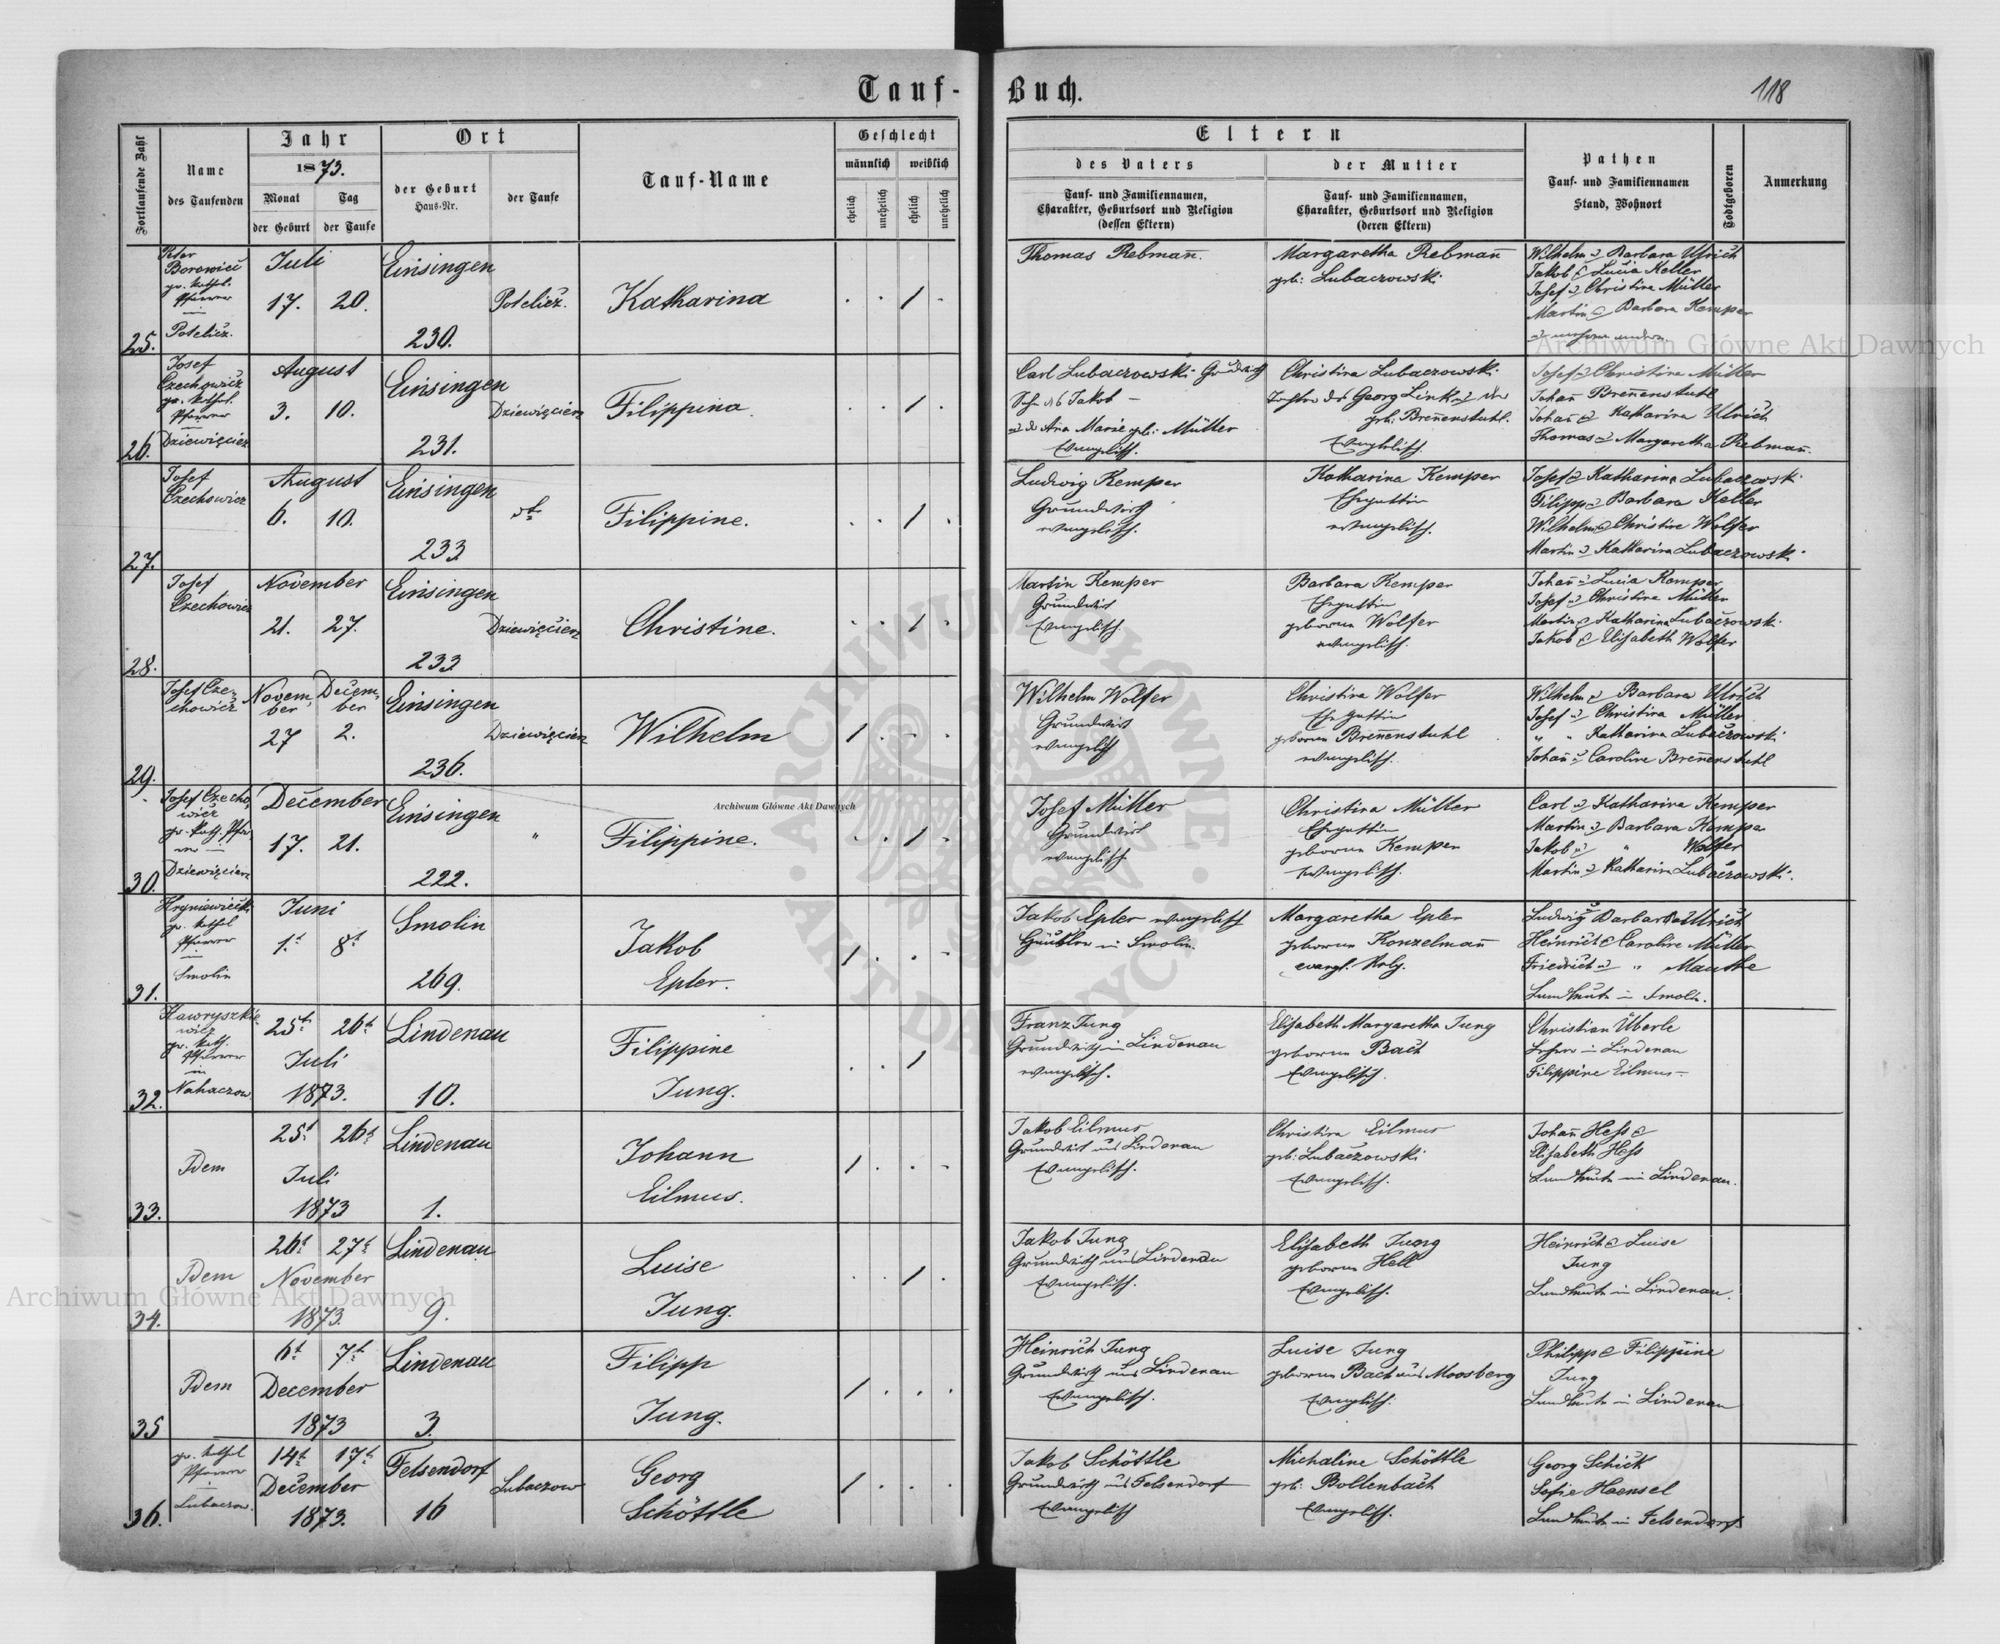 Tauf-Buch.
118
Fortlaufende Zahl
Name
des Taufenden
Jahr
1873.
Monat
Tag
der Geburt
der Taufe
Ort
der Geburt
Haus-Nr.
der Taufe
Tauf-Name
Geschlecht
männlich
weiblich
ehelich
unehelich
ehelich
unehelich
Eltern
des Vaters
Tauf- und Familiennamen,
Charakter, Geburtsort und Religion
(dessen Eltern)
der Mutter
Tauf- und Familiennamen,
Charakter, Geburtsort und Religion
(deren Eltern)
Pathen
Tauf- und Familiennamen
Stand, Wohnort
Todtgeboren
Anmerkung
25.
Borowicz
gr. kathol.
Pfarrer
Potelicz.
Juli
17. 20.
Einsingen
230.
Potelicz.
Katharina
Thomas Rebmañ.
Margaretha Rebmañ
geb: Lubaczowski
Wilhelm u Barbara Ulrich
Jakob & Lucia Keller
Josef u Christina Müller
Martin & Barbara Kemper
26.
Josef
Czechowicz
gr. kathol.
Pfarrer
Dziewięcierz
August
3. 10.
Einsingen
231.
Dziewięcierz
Filippina
Carl Lubaczowski Grundwirth
Sohn des Jakob
u der Aña Marie geb: Müller
Evangelisch.
Christina Lubaczowski
Tochter des Georg Link u der
geb: Breñenstuhl.
Evangelisch
Josef u Christina Müller
Johañ Breñenstuhl
Johañ & Katharina Ulrich
Thomas u Margaretha Rebmañ.
27.
Josef
Czechowicz
August
6. 10.
Einsingen
233
Filippine.
Ludwig Kemper
Grundwirth
evangelisch.
Katharina Kemper
Ehegattin
evangelisch.
Josef & Katharina Lubaczowski
Filipp u Barbara Keller
Wilhelm & Christine Wolfer
Martin u Katharina Lubaczowski
28.
Josef
Czechowicz
November
21. 27.
Einsingen
233
Dziewięcierz
Christine.
Martin Kemper
Grundwirt
Evangelisch.
Barbara Kemper
Ehegattin
geborene Wolfer
evangelisch.
Johañ u Lucia Kemper
Josef u Christine Müller
Martin & Katharina Lubaczowski
Jakob & Elisabeth Wolfer
29.
Josef Cze-
chowicz
Novem- Decem-
ber ber
27 2.
Einsingen
236.
Dziewięcierz
Wilhelm
Wilhelm Wolfer
Grundwirt
evangelisch
Christina Wolfer
Ehegattin
geborene Breñenstuhl
evangelisch.
Wilhelm & Barbara Ulrich
Josef u Christina Müller
" " Katharina Lubaczowski
Johañ u Caroline Breñenstuhl
30.
Josef Czecho-
wicz
gr. kath. Pfar-
rer
Dziewięcierz
December
17. 21.
Einsingen
222.
"
Filippine.
Josef Müller
Grundwirt
evangelisch
Christina Müller
Ehegattin
geborene Kemper
evangelisch.
Carl u Katharina Kemper
Martin u Barbara Kemper
Jakob u " Wolfer
Martin u Katharina Lubaczowski.
31.
gr. kathol
Pfarrer
in
Smolin
Juni
1t 8t
Smolin
269.
Jakob
Epler.
Jakob Epler evangelisch
Häusler in Smolin.
Margaretha Epler
geborene Konzelmañ
evangl. Relg.
Ludwig & Barbara Ulrich
Heinrich & Caroline Müller
Friedrich u " Manthe
Landleute in Smolin.
32.
Hawryszkie-
wicz
gr. kath.
Pfarrer
in
Nahaczow
25t 26t
Juli
1873.
Lindenau
10.
Filippine
Jung.
Franz Jung
Grundwirth in Lindenau
evangelisch.
Elisabeth Margaretha Jung
geborene Bach
Evangelisch.
Christian Überle
Lehrer in Lindenau
Filippine Eilmus
33.
Idem
25t 26t
Juli
1873
Lindenau
1.
Johann
Eilmus.
Jakob Eilmus
Grundwirt aus Lindenau
Evangelisch.
Christina Eilmus
geb: Lubaczowski
Evangelisch.
Johañ Hess &
Elisabeth Hess
Landleute in Lindenau.
34.
Idem
26t 27t
November
1873.
Lindenau
9.
Luise
Jung.
Jakob Jung
Grundwirth aus Lindenau
Evangelisch.
Elisabeth Jung
geborene Hell
Evangelisch.
Heinrich & Luise
Jung
Landleute in Lindenau.
35
Idem
6t 7t
December
1873
Lindenau
3.
Filipp
Jung.
Heinrich Jung
Grundwirth aus Lindenau
Evangelisch.
Luise Jung
geborene Bach aus Moosberg
Evangelisch.
Philipp & Filippine
Jung
Landleute in Lindenau
36.
gr. kathol
Pfarrer
Lubaczow.
14t 17t
December
1873.
Felsendorf
16
Lubaczow
Georg
Schöttle
Jakob Schöttle
Grundwirth aus Felsendorf
Evangelisch
Michaline Schöttle
geb: Bollenbach
Evangelisch.
Georg Schick
Sofie Haensel
Landleute in Felsendorf
Archiwum Główne Akt Dawnych
Archiwum Główne Akt Dawnych
Archiwum Główne Akt Dawnych
ARCHIWUM GŁÓWNE · AKT DAWNYCH ·